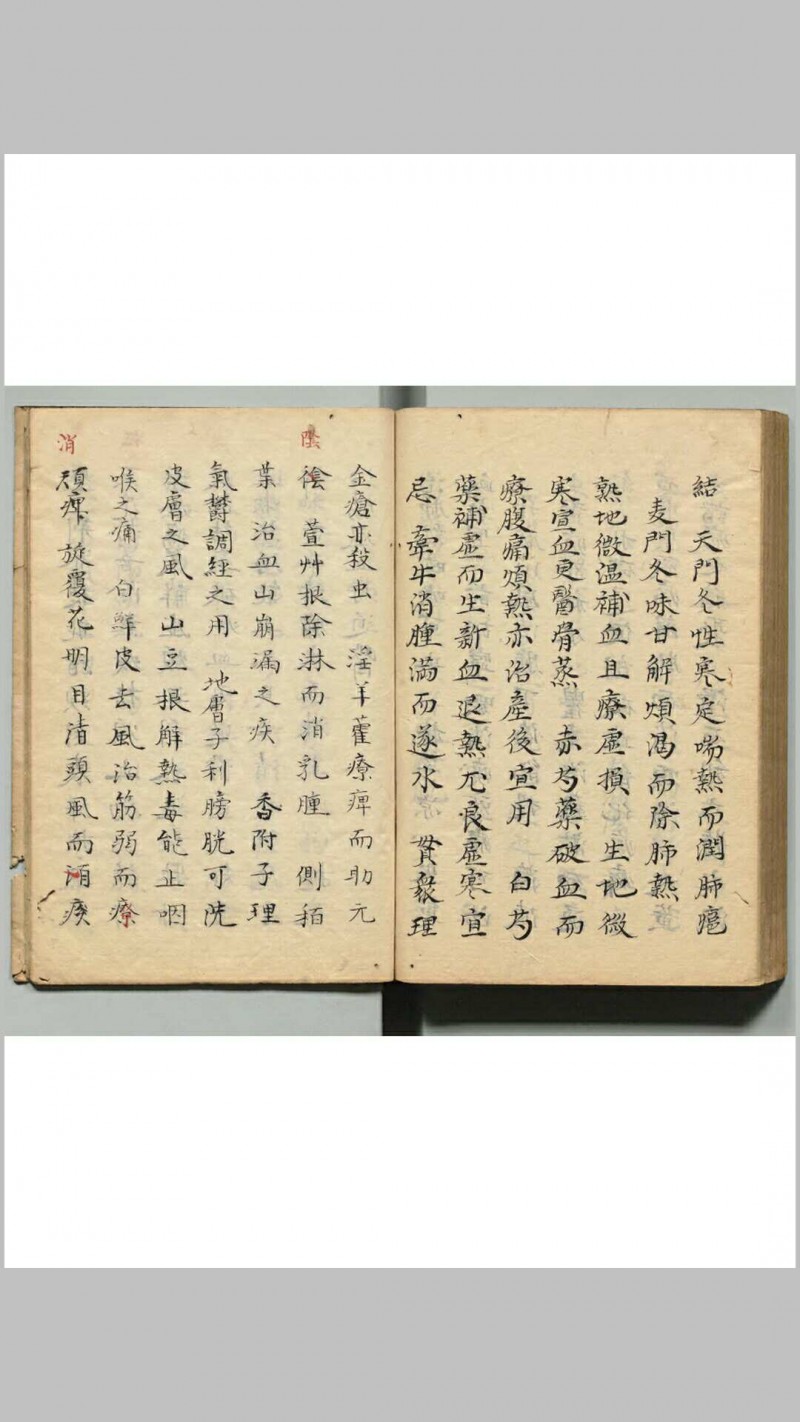 結 天門冬性寒定喘熱而潤肺癰
麦門冬味甘解煩渴而除肺熱
熟地微温補血且療虚損 生地微
寒宣血更醫骨蒸 赤芍藥破血而
療腹痛煩熱亦治産後宜用 白芍
藥補虚而生新血退熱尤良虚寒宜
忌 牽牛消腫滿而逐水 貫衆理
金瘡亦殺虫 淫羊藿療痺而助元
陰
陰 萱艸根除淋而消乳腫 側栢
葉 治血山崩漏之疾 香附子理
氣欝調經之用 地膚子利膀胱可洗
皮膚之風 山豆根解熱毒能止咽
喉之痛 白鮮皮去風治筋弱而療
消
頑痺 旋覆花明目清頭風而消痰